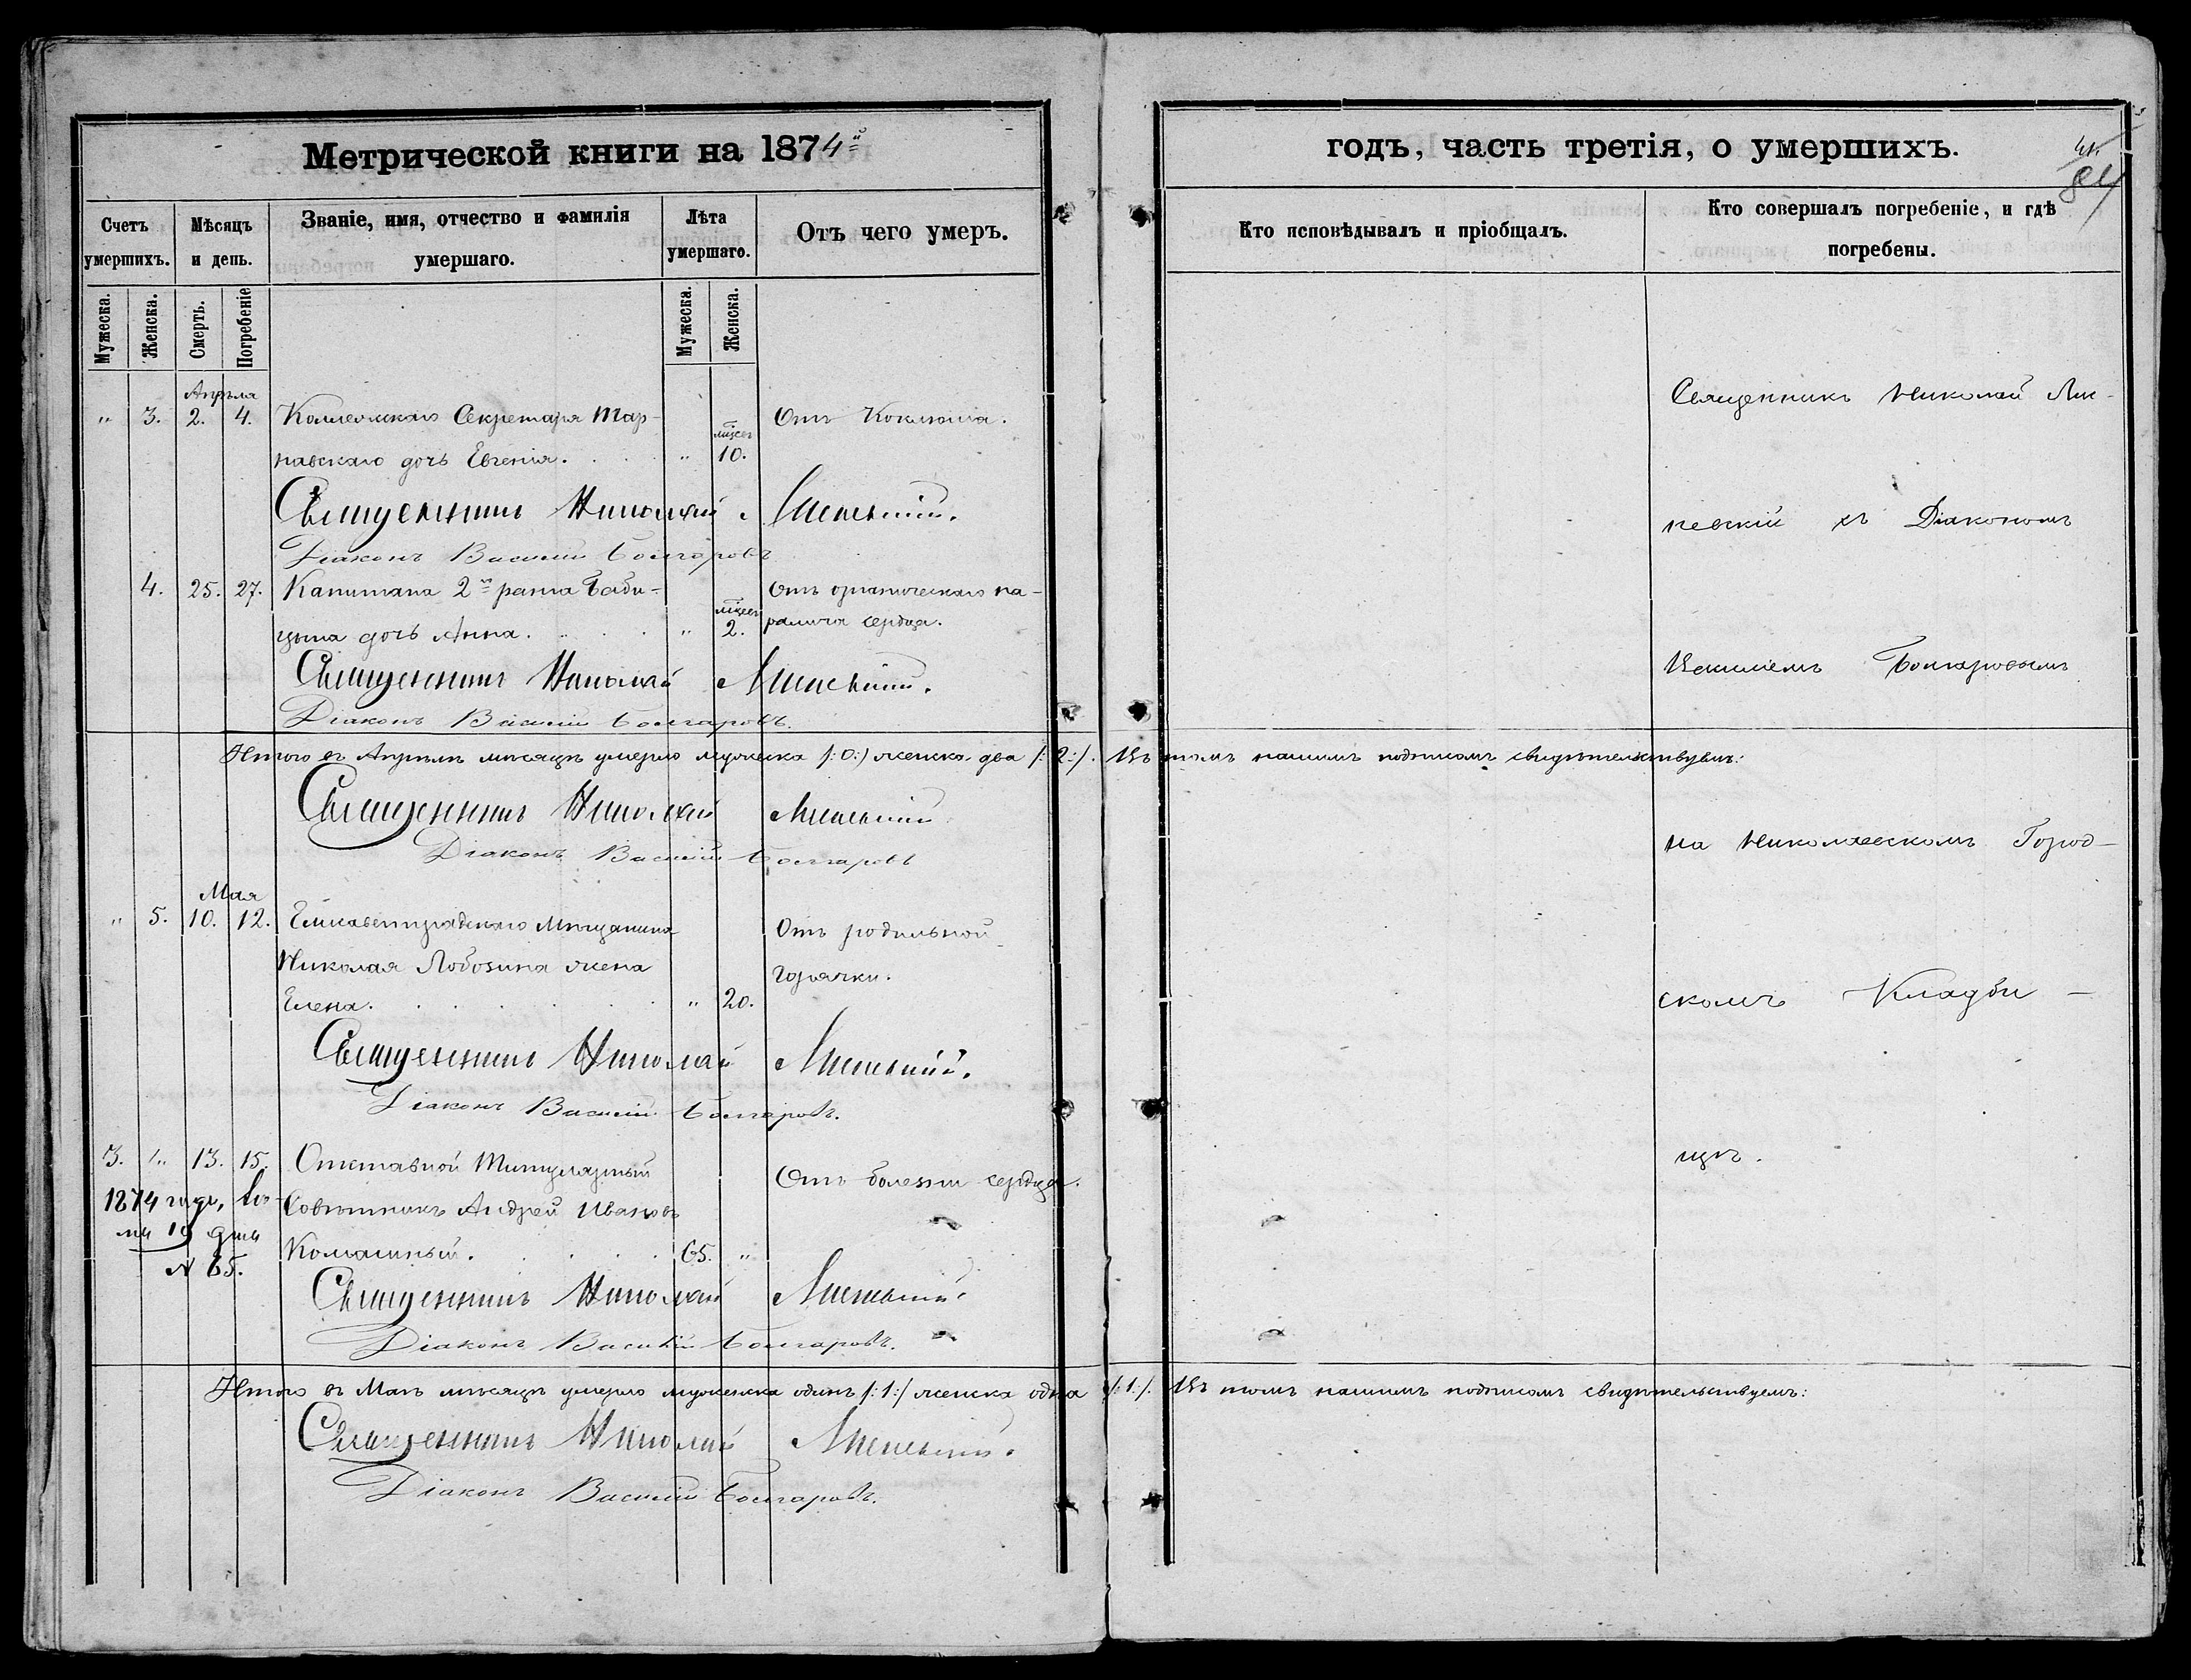 Метрической книги на 1874й
годъ, часть третія, о умершихъ.
84
Счетъ умершихъ.
Мѣсяцъ и день.
Званіе, имя, отчество и фамилія умершаго.
Лѣта умершаго.
Отъ чего умеръ.
Кто исповѣдывалъ и пріобщалъ.
Кто совершалъ погребеніе, и гдѣ погребены.
Мужеска.
Женска.
Смерть.
Погребеніе
Мужеска.
Женска.
Апрѣля
" 3. 2. 4. Коллежскаго Секретаря Тар- Отъ Коклюша.
навскаго дочь Евгенія. " мѣсец 10.
Священникъ Николай
Діаконъ Василій Болгаровъ
4. 25. 27. Капитана 2го ранга Баби- Отъ органическаго па-
цына дочь Анна. " мѣсец 2. ралича сердца.
Священникъ Николай
Діаконъ Василій Болгаровъ.
Итого въ Апрѣлѣ мѣсяцѣ умерло мужеска /:0:/ женска два /:2:/. Въ томъ нашимъ подписомъ свидѣтельствуемъ:
Священникъ Николай
Діаконъ Василій Болгаровъ
Мая
" 5. 10. 12. Елисаветградскаго Мѣщанина Отъ родильной
Николая Лобозина жена горячки.
Елена. " 20.
Священникъ Николай
Діаконъ Василій Болгаровъ.
3. " 13. 15. Отставной Титулярный Отъ болезни сердца.
1874 года,
Совѣтникъ Андрей Ивановъ
19 дня
65. "
N 65.
Священникъ Николай
Діаконъ Василій Болгаровъ.
Итого въ Маѣ мѣсяцѣ умерло мужеска одинъ /:1:/ женска одна /:1:/. Въ томъ нашимъ подписомъ свидѣтельствуемъ:
Священникъ Николай
Діаконъ Василій Болгаровъ.
Священникъ Николай
съ Діакономъ
Василіемъ Болгаровымъ
на Николаевскомъ Город-
скомъ Кладби-
щѣ.